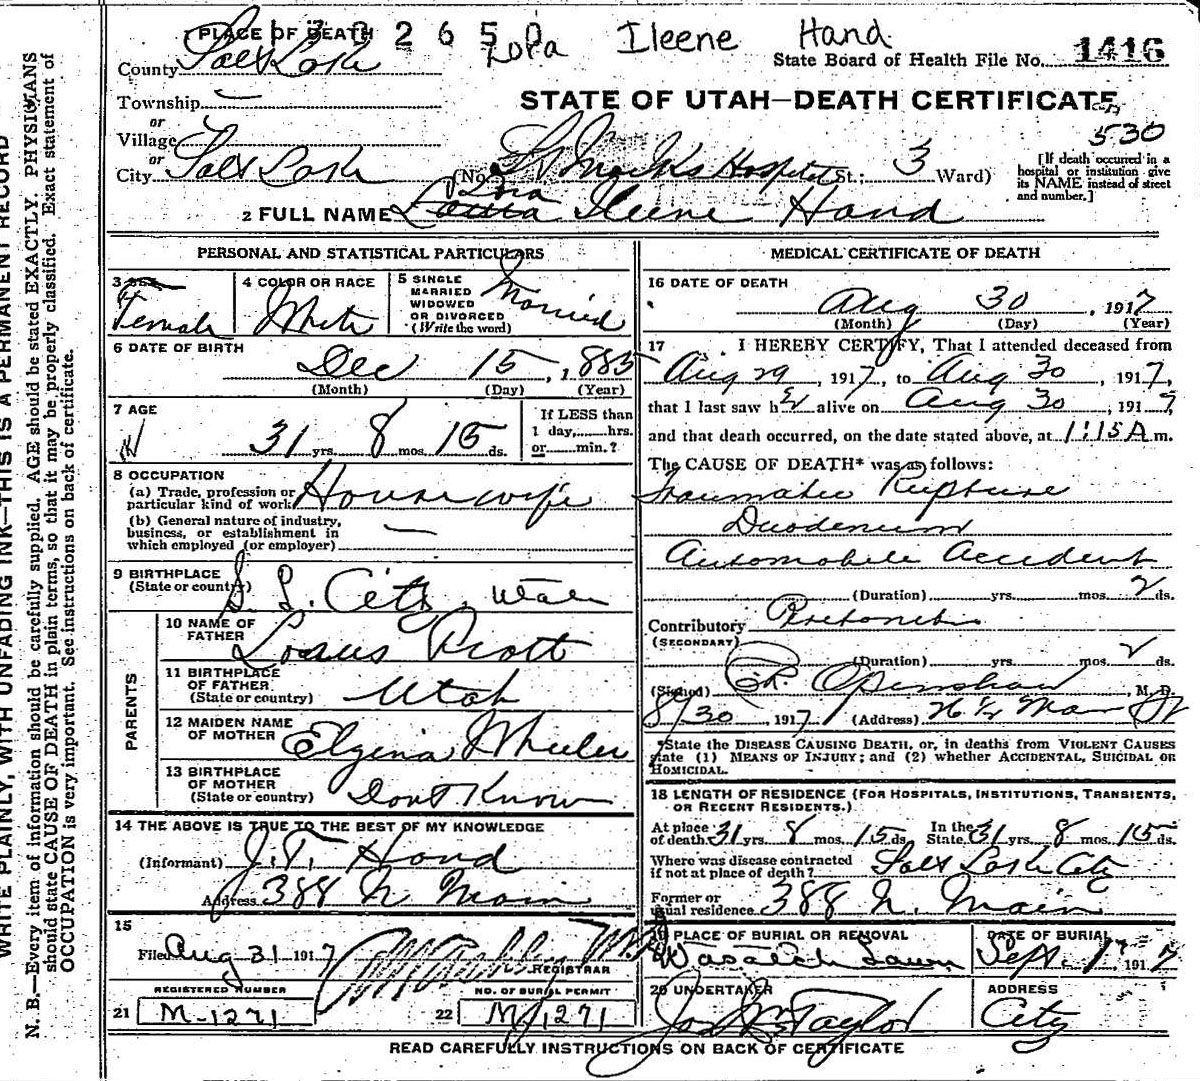 1 PLACE OF DEATH 2 6 5 Lola Ileene Hand
County Salt Lake State Board of Health File No. 1416
Township
or STATE OF UTAH—DEATH CERTIFICATE
Village 530
or
City Salt Lake (No. St Marks Hospital St.; 3 Ward)
[If death occurred in a
hospital or institution give
its NAME instead of street
and number.]
2 FULL NAME Ileene Hand
PERSONAL AND STATISTICAL PARTICULARS
3 SEX Female
4 COLOR OR RACE White
5 SINGLE
MARRIED
WIDOWED
OR DIVORCED
(Write the word) Married
6 DATE OF BIRTH
Dec 15, 1885
(Month) (Day) (Year)
7 AGE
31 yrs. 8 mos. 15 ds.
If LESS than
1 day,......hrs.
or......min.?
8 OCCUPATION
(a) Trade, profession or
particular kind of work Housewife
(b) General nature of industry,
business, or establishment in
which employed (or employer)
9 BIRTHPLACE
(State or country) S. L. City, Utah
PARENTS
10 NAME OF
FATHER
11 BIRTHPLACE
OF FATHER
(State or country) Utah
12 MAIDEN NAME
OF MOTHER Wheeler
13 BIRTHPLACE
OF MOTHER
(State or country) Dont Know
14 THE ABOVE IS TRUE TO THE BEST OF MY KNOWLEDGE
(Informant) J. T. Hand
Address 388 N. Main
15
Filed Aug 31 1917
REGISTRAR
REGISTERED NUMBER
21 M-1271
NO. OF BURIAL PERMIT
22 M-1271
MEDICAL CERTIFICATE OF DEATH
16 DATE OF DEATH
Aug 30, 1917
(Month) (Day) (Year)
17 I HEREBY CERTIFY, That I attended deceased from
Aug 29, 1917, to Aug 30, 1917,
that I last saw her alive on Aug 30, 1917,
and that death occurred, on the date stated above, at 1:15 A m.
The CAUSE OF DEATH* was as follows:
Traumatic Rupture
Duodenum
Automobile Accident
(Duration) yrs. mos. 2 ds.
Contributory
(SECONDARY)
(Duration) yrs. mos. 2 ds.
(Signed) Openshaw, M. D.
8/30, 1917 (Address) Main St
*State the DISEASE CAUSING DEATH, or, in deaths from VIOLENT CAUSES
state (1) MEANS OF INJURY; and (2) whether ACCIDENTAL, SUICIDAL OR
HOMICIDAL.
18 LENGTH OF RESIDENCE (FOR HOSPITALS, INSTITUTIONS, TRANSIENTS,
OR RECENT RESIDENTS.)
At place
of death 31 yrs. 8 mos. 15 ds. In the
State 31 yrs. 8 mos. 15 ds.
Where was disease contracted
if not at place of death? Salt Lake City
Former or
usual residence 388 N. Main
19 PLACE OF BURIAL OR REMOVAL
Wasatch Lawn
DATE OF BURIAL
Sept. 1, 1917
20 UNDERTAKER
Taylor
ADDRESS
City
READ CAREFULLY INSTRUCTIONS ON BACK OF CERTIFICATE
WRITE PLAINLY, WITH UNFADING INK—THIS IS A PERMANENT RECORD
N. B.—Every item of information should be carefully supplied. AGE should be stated EXACTLY. PHYSICIANS
should state CAUSE OF DEATH in plain terms, so that it may be properly classified. Exact statement of
OCCUPATION is very important. See instructions on back of certificate.